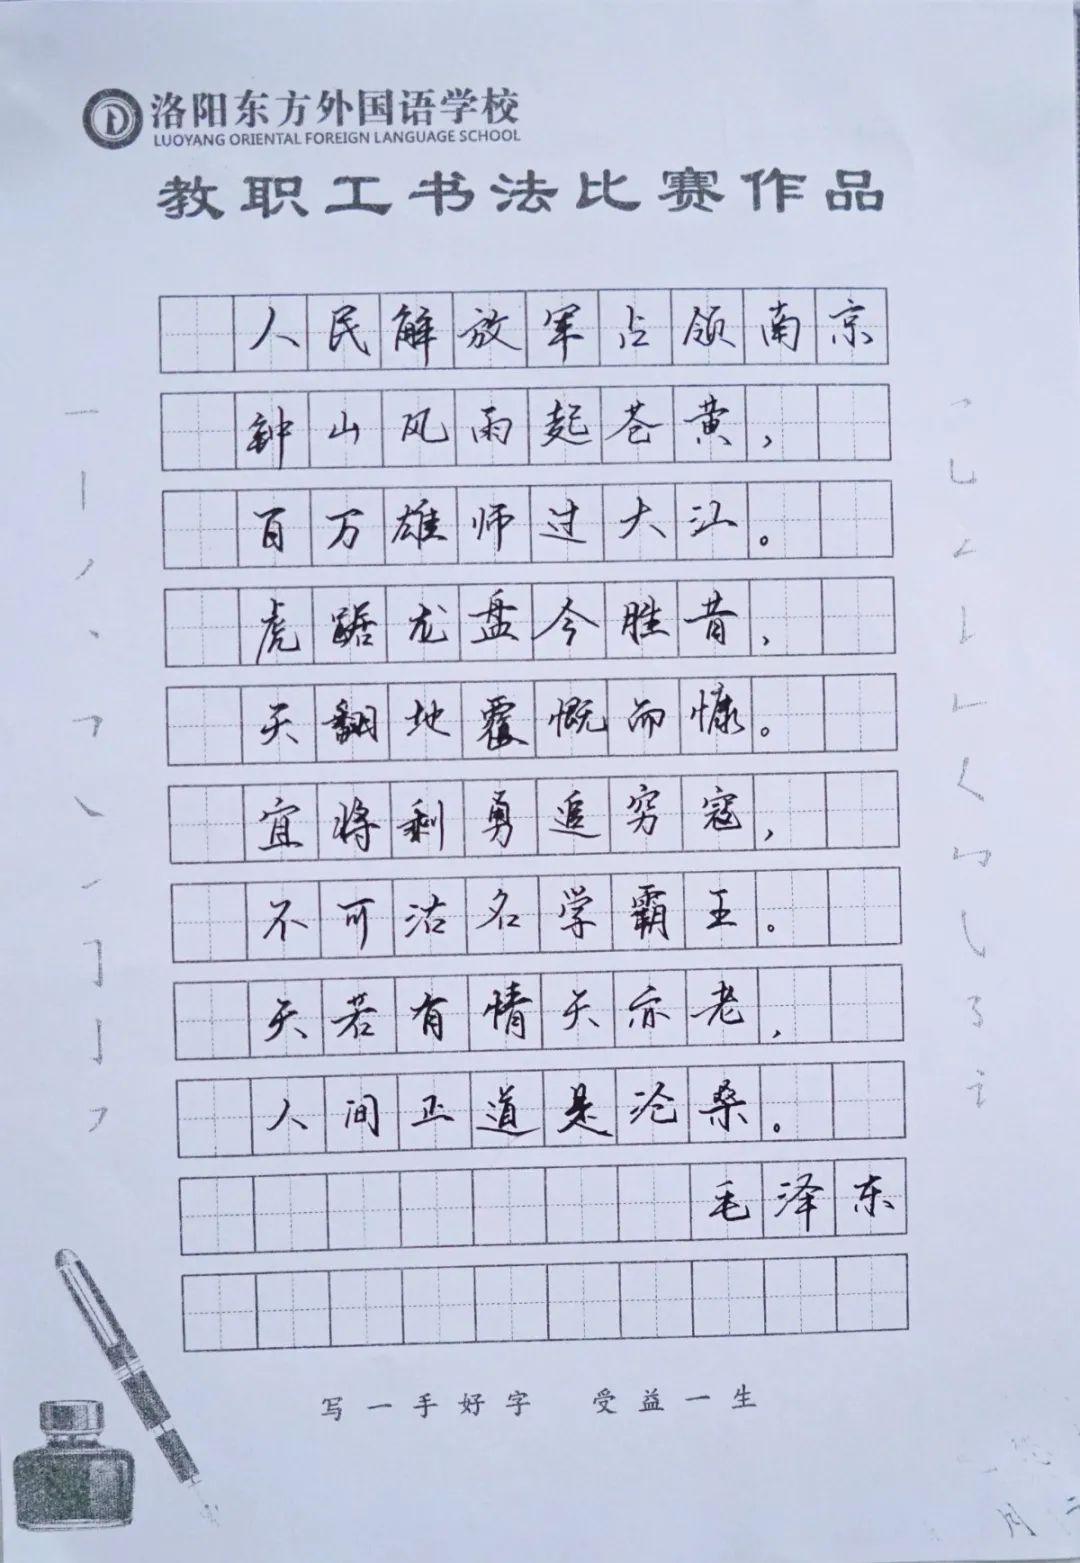 洛阳东方外国语学校
LUOYANG ORIENTAL FOREIGN LANGUAGE SCHOOL
教职工书法比赛作品
人民解放军占领南京
钟山风雨起苍黄，
百万雄师过大江。
虎踞龙盘今胜昔，
天翻地覆慨而慷。
宜将剩勇追穷寇，
不可沽名学霸王。
天若有情天亦老，
人间正道是沧桑。
毛泽东
写一手好字 受益一生
月二